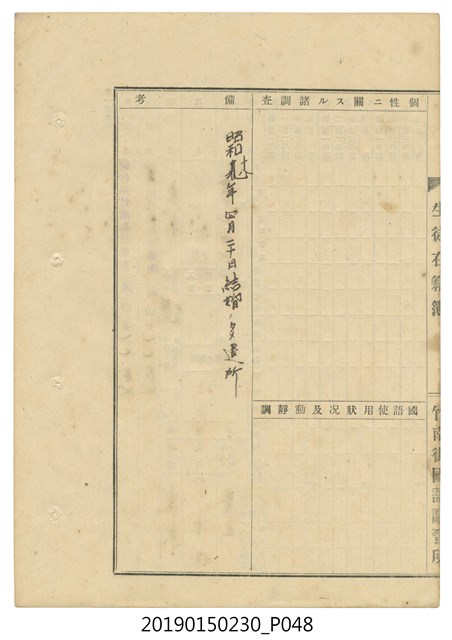 生徒在籍簿
竹南街國語講習所
個性ニ關スル諸調査
國語使用狀況及動靜調
備考
昭和 年四月二十日結婚ノタ 所
20190150230_P048